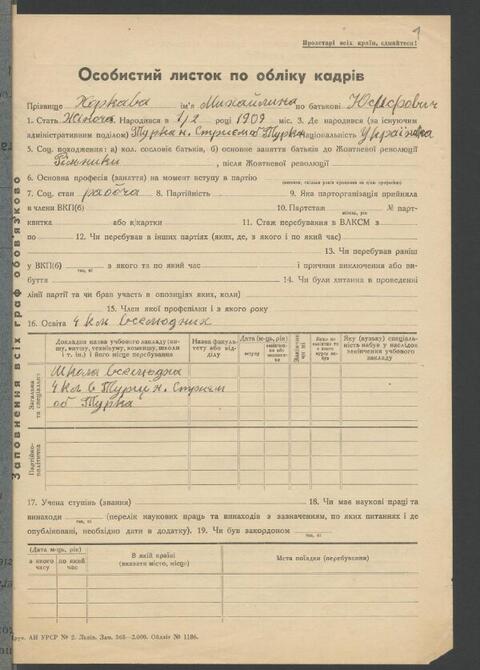 1
Пролетарі всіх країн, єднайтеся!
Особистий листок по обліку кадрів
Прізвище Жержава ім'я Михайлина по батькові Юсифович
1. Стать Жіноча. Народився в 1/2 році 1909 міс. 3. Де народився (за існуючим
адміністративним поділом) Турка н. Стриєм о Турка Національність Українка
5. Соц. походження: а) кол. сословіє батьків, б) основне заняття батьків до Жовтневої революції
, після Жовтневої революції
6. Основна професія (заняття) на момент вступу в партію
7. Соц. стан робоча 8. Партійність 9. Яка парторганізація прийняла
в члени ВКП(б) 10. Партстаж № парт-
місяць, рік
квитка або к/картки 11. Стаж перебування в ВЛКСМ з
по 12. Чи перебував в інших партіях (яких, де, з якого і по який час)
13. Чи перебував раніш
у ВКП(б) з якого та по який час і причини виключення або ви-
так, ні
буття 14. Чи були хитання в проведенні
лінії партії та чи брав участь в опозиціях яких, коли)
15. Член якої профспілки і з якого року
16. Освіта 4 кл вселюдних
Заповнення всіх граф обов'язково
Докладна назва учбового закладу (ви-
шу, втузу, технікуму, комвишу, школи
і т. ін.) і його місце перебування
Назва факуль-
тету або від-
ділу
Дата (м-ць, рік)
вступу
Яку (вузьку) спеціаль-
ність набув у наслідок
закінчення учбового
закладу
Загальна
та спеціальна
Школа вселюдна
4 кл в Турці н. Стриєм
об Турка
Партійно-
політична
17. Учена ступінь (звання) 18. Чи має наукові праці та
винаходи (перелік наукових праць та винаходів з зазначенням, по яких питаннях і де
так, ні
опубліковані, необхідно дати в додатку). 19. Чи був закордоном
так, ні
(Дата м-ць, рік)
з якого часу
по який час
В якій країні
(вказати місто, місце)
Мета поїздки (перебування)
Друк. АН УРСР № 2. Львів. Зам. 565—3.000. Обліт № 1186.